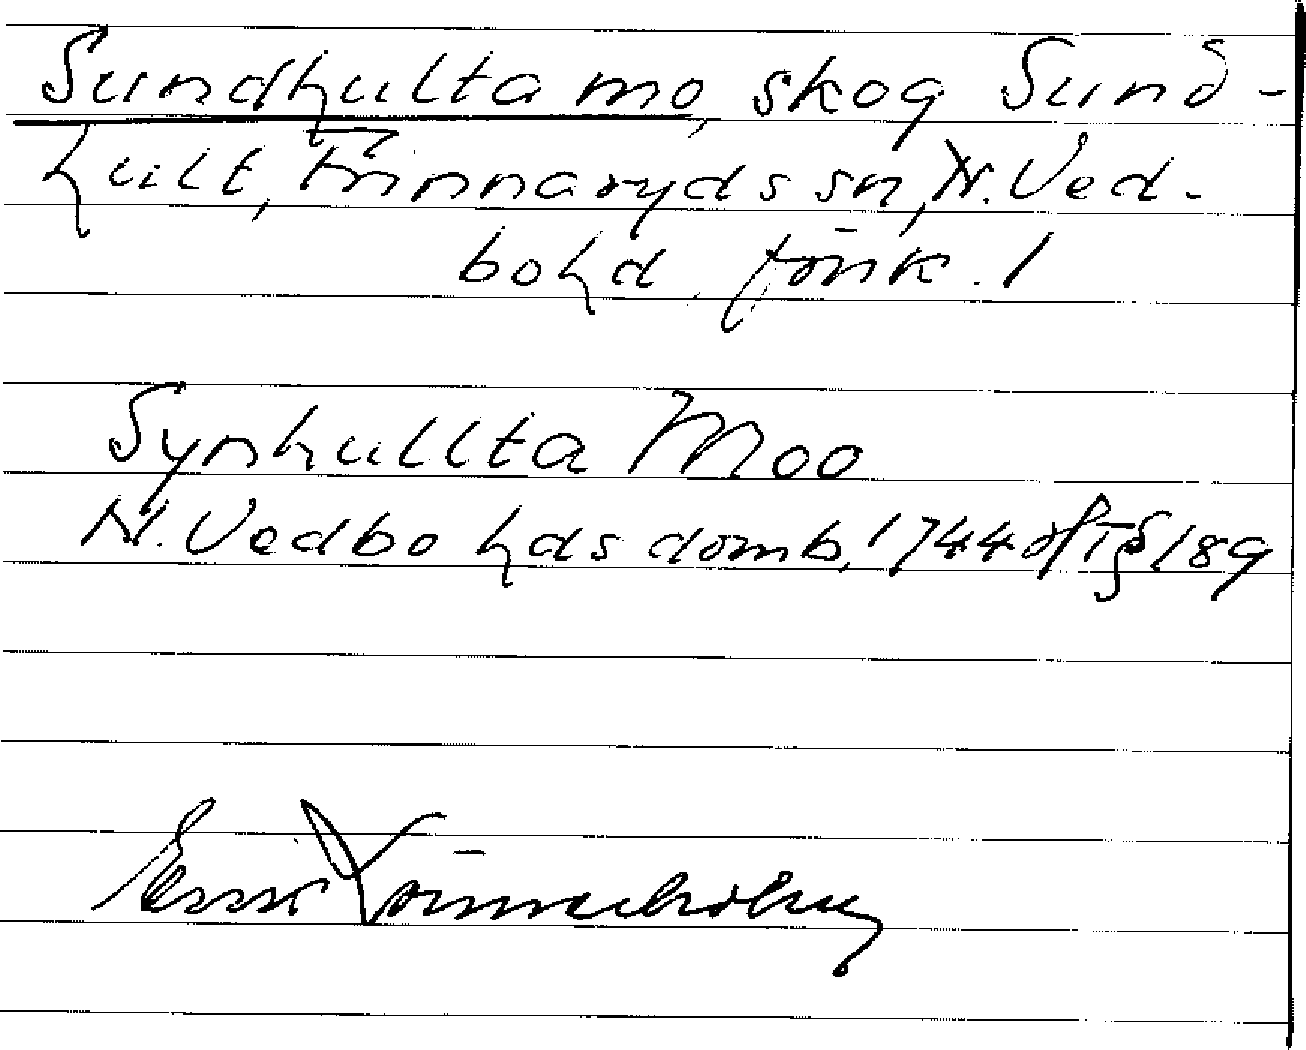 Sundhulta mo, skog Sund-
hult, Linnaryds sn, N. Ved-
bo hd. Jönk. l
Synhullta Moo
N. Vedbo hds domb. 1744 ht § 189
Erik